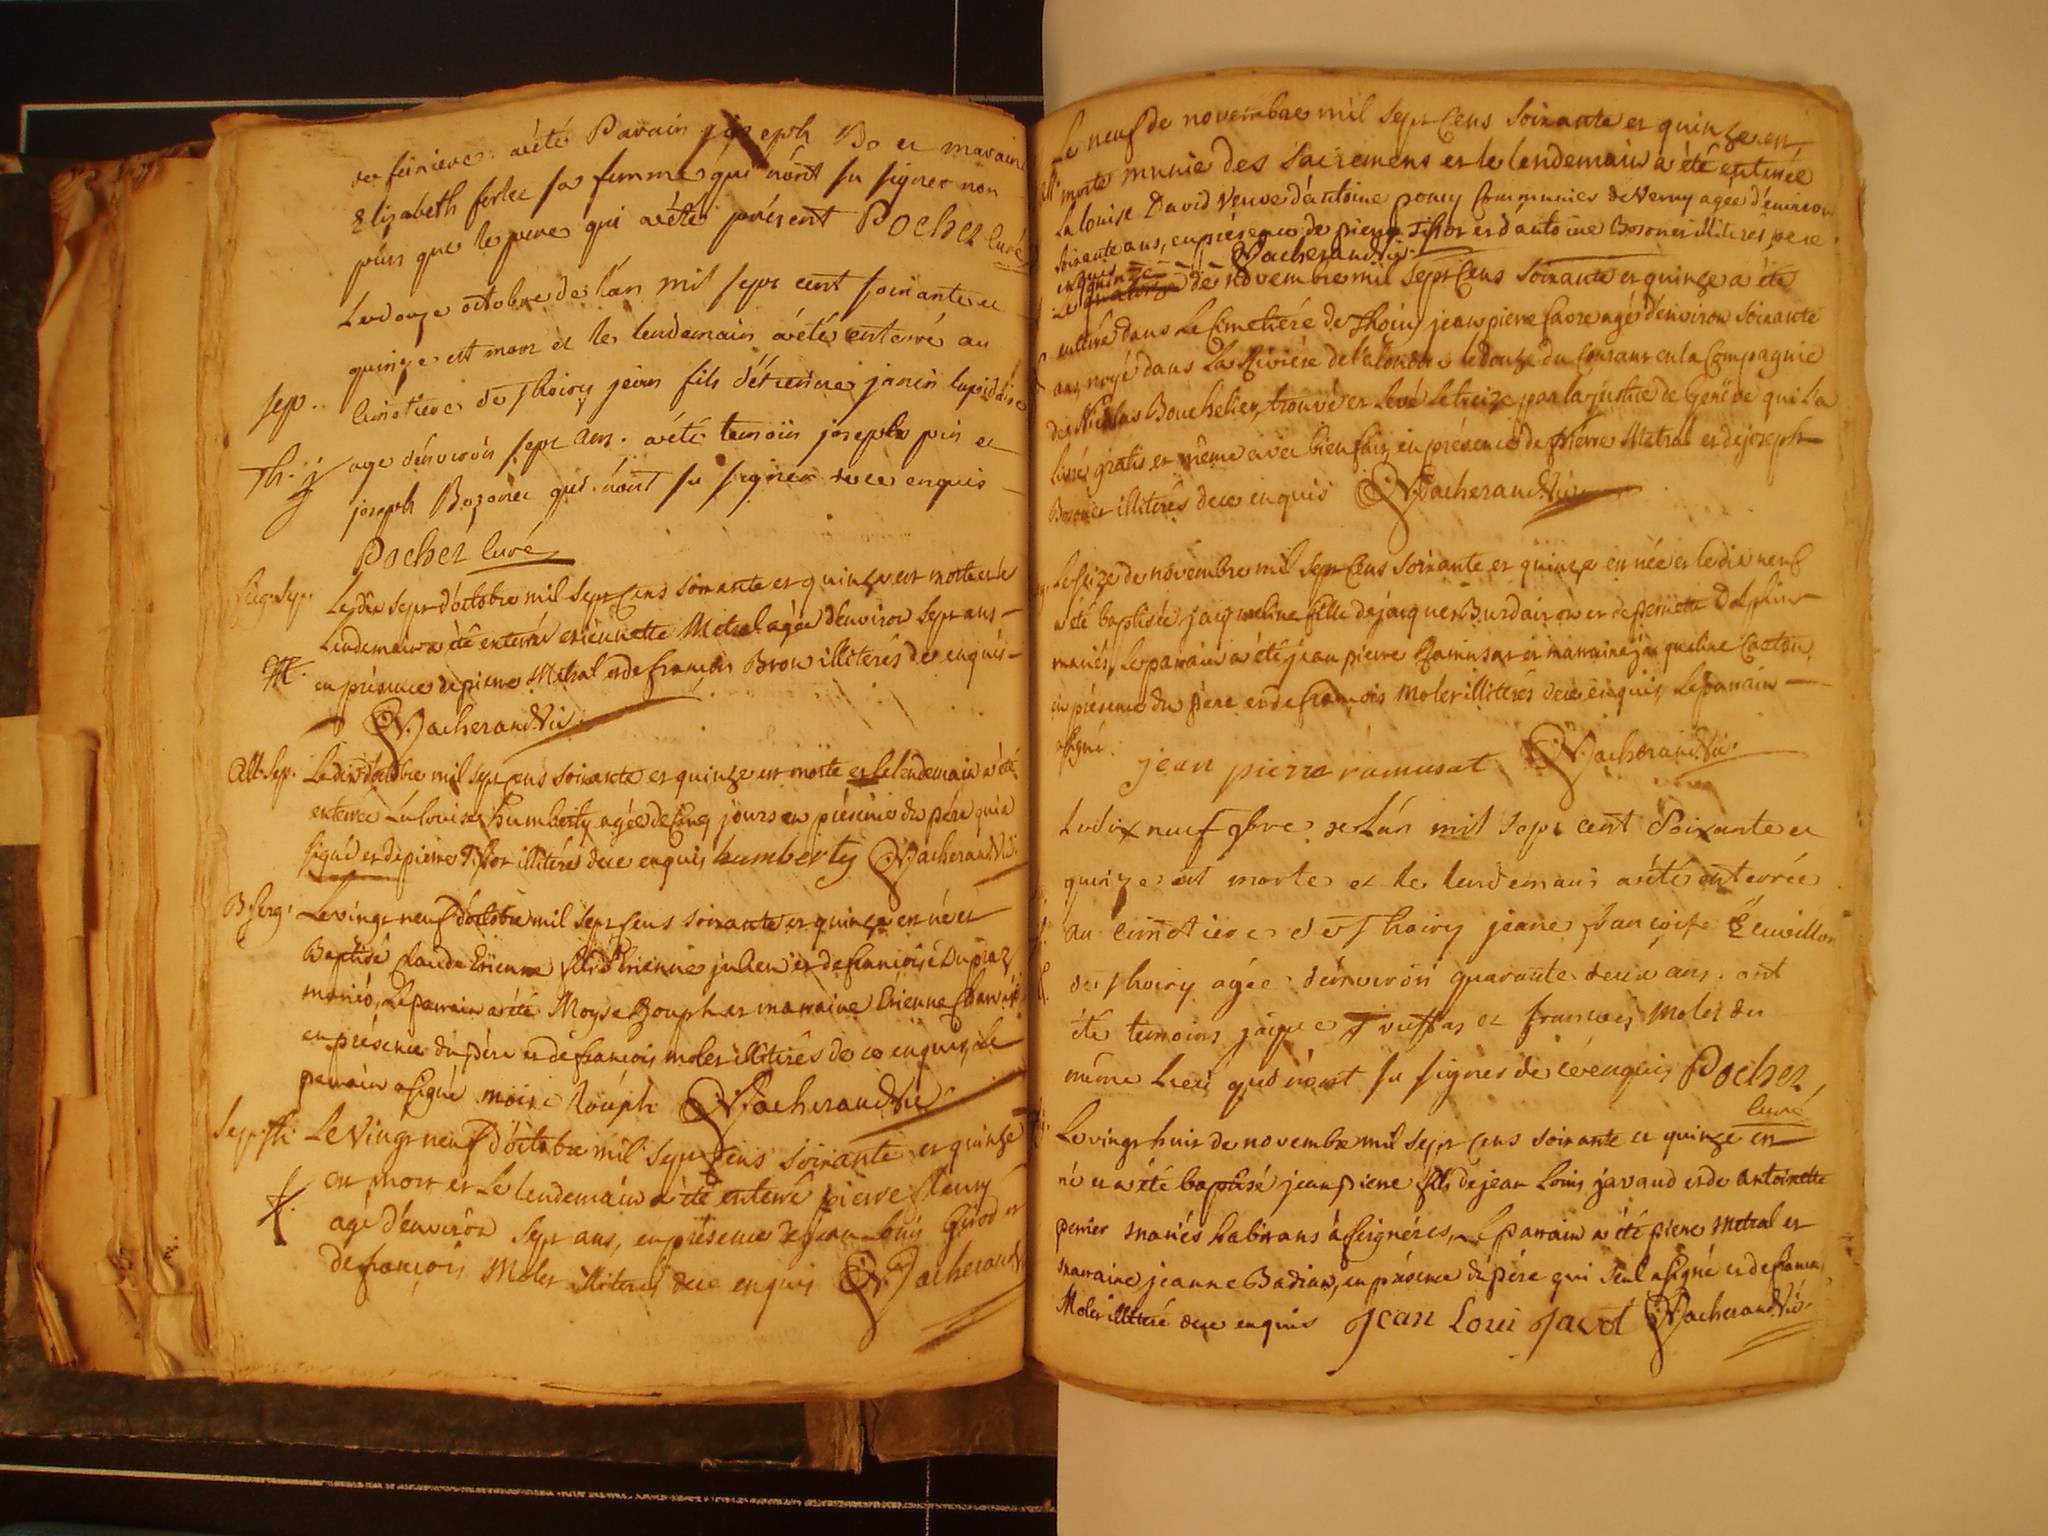 a été Parain joseph Bo et maraine
Elizabeth ferlee sa femme qui n'ont su signer non
plus que le pere qui a été présent Pochet Curé
Le douze octobre de l'an mil sept cent soixante et
quinze est mort et le lendemain a été enterré au
Sep.
cimetiere de Thoiry jean fils d'étienne janin lapidaire
Th. j
age d'environ sept ans. a été temoin joseph pin et
joseph Bozonet qui n'ont su signer de ce enquis
Pochet Curé
Seig. Sep.
Le dix sept d'octobre mil sept cens soixante et quinze est morte et le
Lendemain a été enterrée etiennette Metral agée d'environ sept ans
en présence de pierre Metral et de françois Brow illiterés de ce enquis
N. Vacherand Vic.
All. Sep.
Le dix d'octobre mil sept cens soixante et quinze est morte et le lendemain a été
enterrée La louise humberty agée de Cinq jours en présence du pére qui a
signé et de pierre Tissot illiterés de ce enquis humberty N. Vacherand Vic.
B. Serg.
Le vingt neuf d'octobre mil sept cens soixante et quinze est né et
Baptisé Claude Etienne fils d'Etienne julien et de françoise Dupraz
mariés, Le parrain a été Moyse Zouph et marraine Etienne
en présence du pére et de françois moler illiterés de ce enquis, Le
parrain a signé moise Zouph N. Vacherand Vic.
Sep. th.
Le Vingt neuf d'octobre mil sept cens soixante et quinze
est mort et Le lendemain a été enterré pierre fleury
agé d'environ sept ans, en présence de jean Louis Girod et
de françois Moler illiterés de ce enquis N. Vacherand
Le neuf de novembre mil sept Cens soixante et quinze est
morte munie des sacremens et le lendemain a été enterrée
La louise David veuve d'antoine poncy Communier de Verny agée d'environ
soixante ans, en présence de pierre Tissot et d'antoine Bosonet illiterés de ce
enquis N. Vacherand Vic.
Le quinze de novembre mil sept Cens soixante et quinze a été
enterré dans Le Cimetiére de Thoiry jean pierre favre agé d'environ soixante
ans, noyé dans La Riviére de l'alondon le douze du Courant en la Compagnie
de Nicolas Bouchelier, trouvé et Levé le treize par la justice de Genéve qui l'a
livré gratis et même avec bienfait, en présence de pierre Metral et de joseph
Bosonet illiterés de ce enquis N. Vacherand Vic.
Le seize de novembre mil sept Cens soixante et quinze est née et le dix neuf
a été baptisée jaqueline fille de jacques Burdairon et de pernette Delphin
mariés, Le parrain a été jean pierre Ramusat et marraine jaqueline Caston
en présence du pére et de françois Moler illiterés de ce enquis, Le parrain
a signé.
jean pierre ramusat N. Vacherand Vic.
Le dix neuf 9bre de l'an mil sept cent soixante et
quinze est morte et le lendemain a été enterrée
au cimetiere de Thoiry jeane françoise Ecuvillon
de Thoiry agée d'environ quarante deux ans. ont
été temoins jaque Truffas et françois Moler du
même Lieu qui n'ont su signer de ce enquis Pochet
Curé
Le vingt huit de novembre mil sept cens soixante et quinze est
né et a été baptisé jean pierre fils de jean Louis javaud et de antoinette
perrier mariés habitans à Seignéres, Le parrain a été pierre Metral et
marraine jeanne Badian, en présence du pére qui seul a signé et de françois
Moler illiteré de ce enquis Jean Loui Javot N. Vacherand Vic.